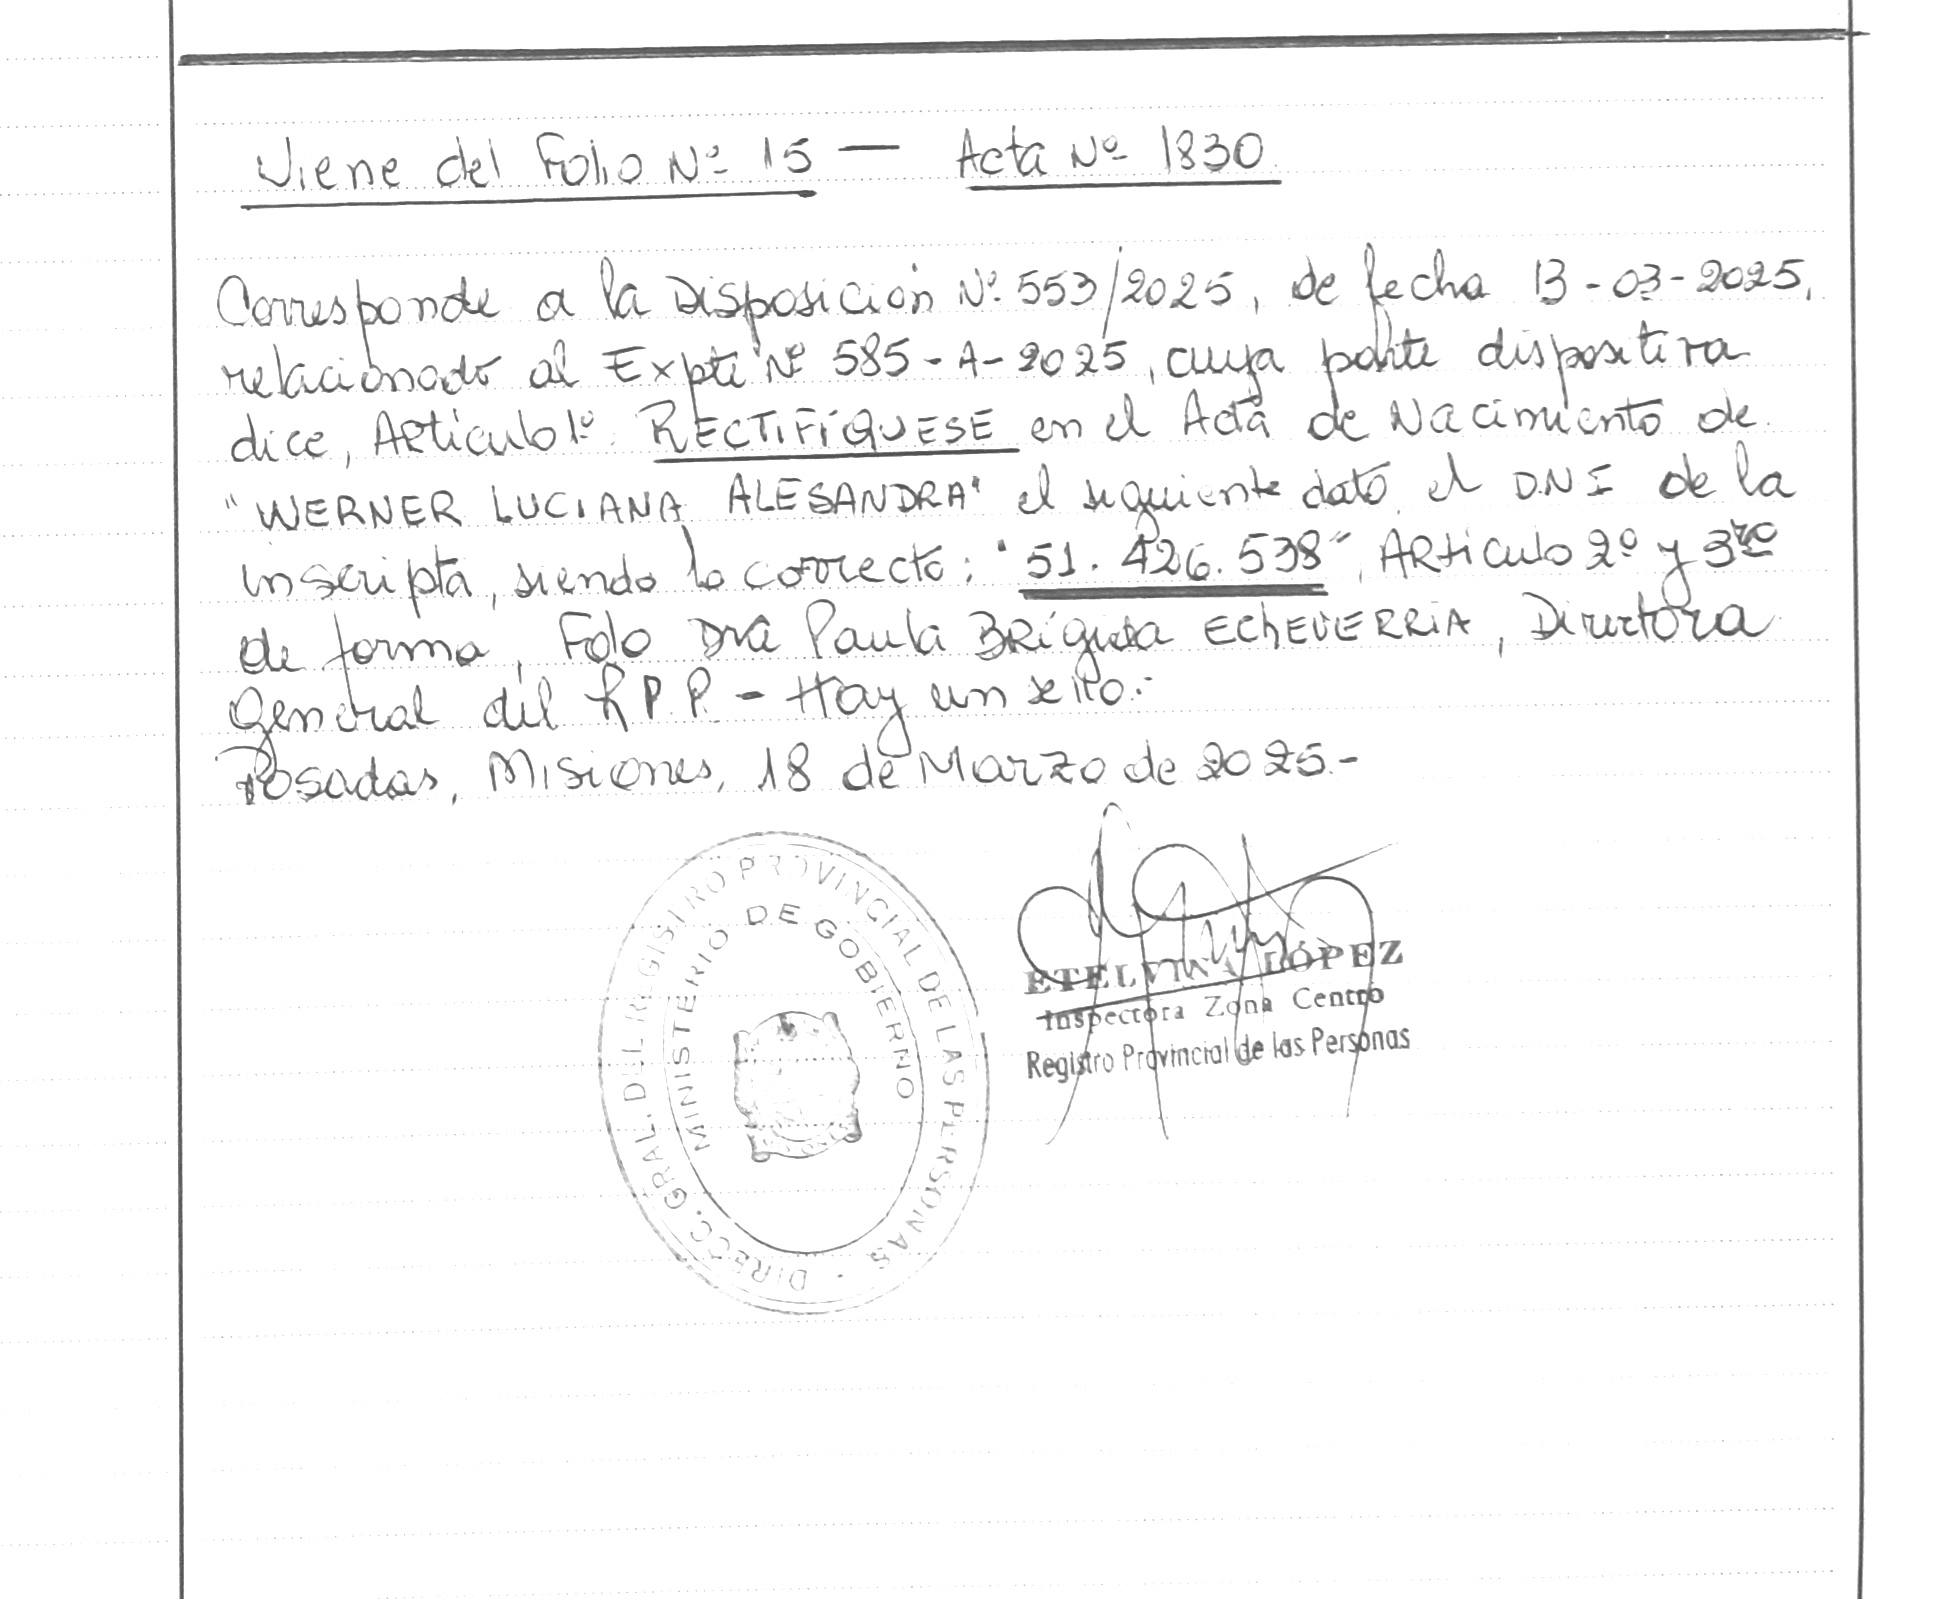 Viene del Folio Nº 15 — Acta Nº 1830
Corresponde a la Disposición Nº 553/2025, de fecha 13-03-2025,
relacionado al Expte Nº 585-A-2025, cuya parte dispositiva
dice, Artículo 1º RECTIFÍQUESE en el Acta de Nacimiento de
"WERNER LUCIANA ALESANDRA" el siguiente dato, el D.N.I de la
inscripta, siendo lo correcto: "51.426.538", Artículo 2º y 3ro
de forma, Fdo Dra Paula Brígida ECHEVERRIA, Directora
General del R.P.P. - Hay un sello.-
Posadas, Misiones, 18 de Marzo de 2025.-
DIRECC. GRAL. DEL REGISTRO PROVINCIAL DE LAS PERSONAS
MINISTERIO DE GOBIERNO
ETELVINA LÓPEZ
Inspectora Zona Centro
Registro Provincial de las Personas